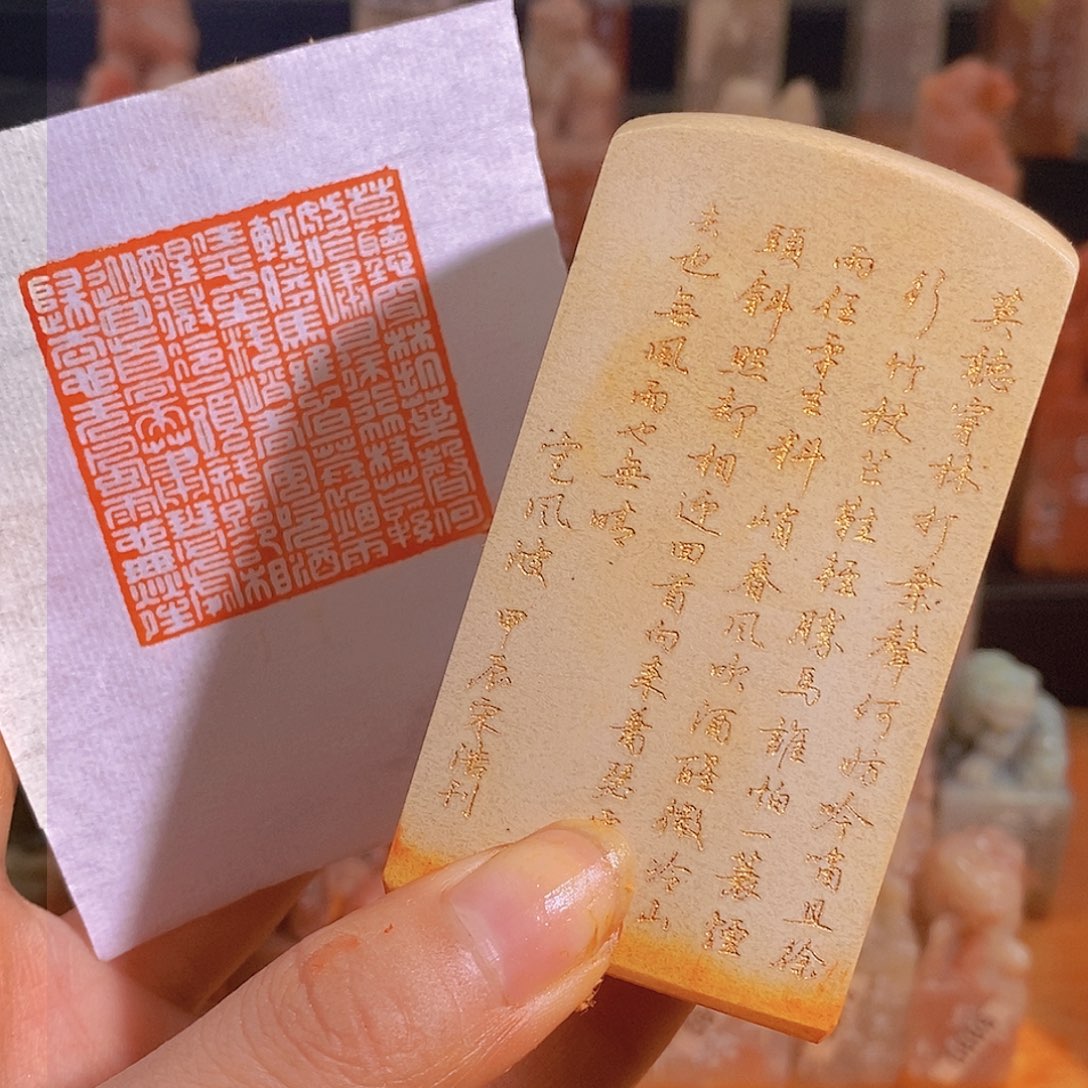 莫聽穿林打葉聲何
妨吟嘯且徐行竹杖芒鞋
輕勝馬誰怕一蓑煙雨
任平生料峭春風吹酒
醒微冷山頭斜照卻相
迎回首向來蕭瑟處
歸去也無風雨也無晴
莫聽穿林打葉聲何妨吟嘯且徐
行竹杖芒鞋輕勝馬誰怕一蓑煙
雨任平生料峭春風吹酒醒微冷山
頭斜照却相迎回首向來蕭瑟
去也無風雨也無晴
定風波 甲辰宋浩刊